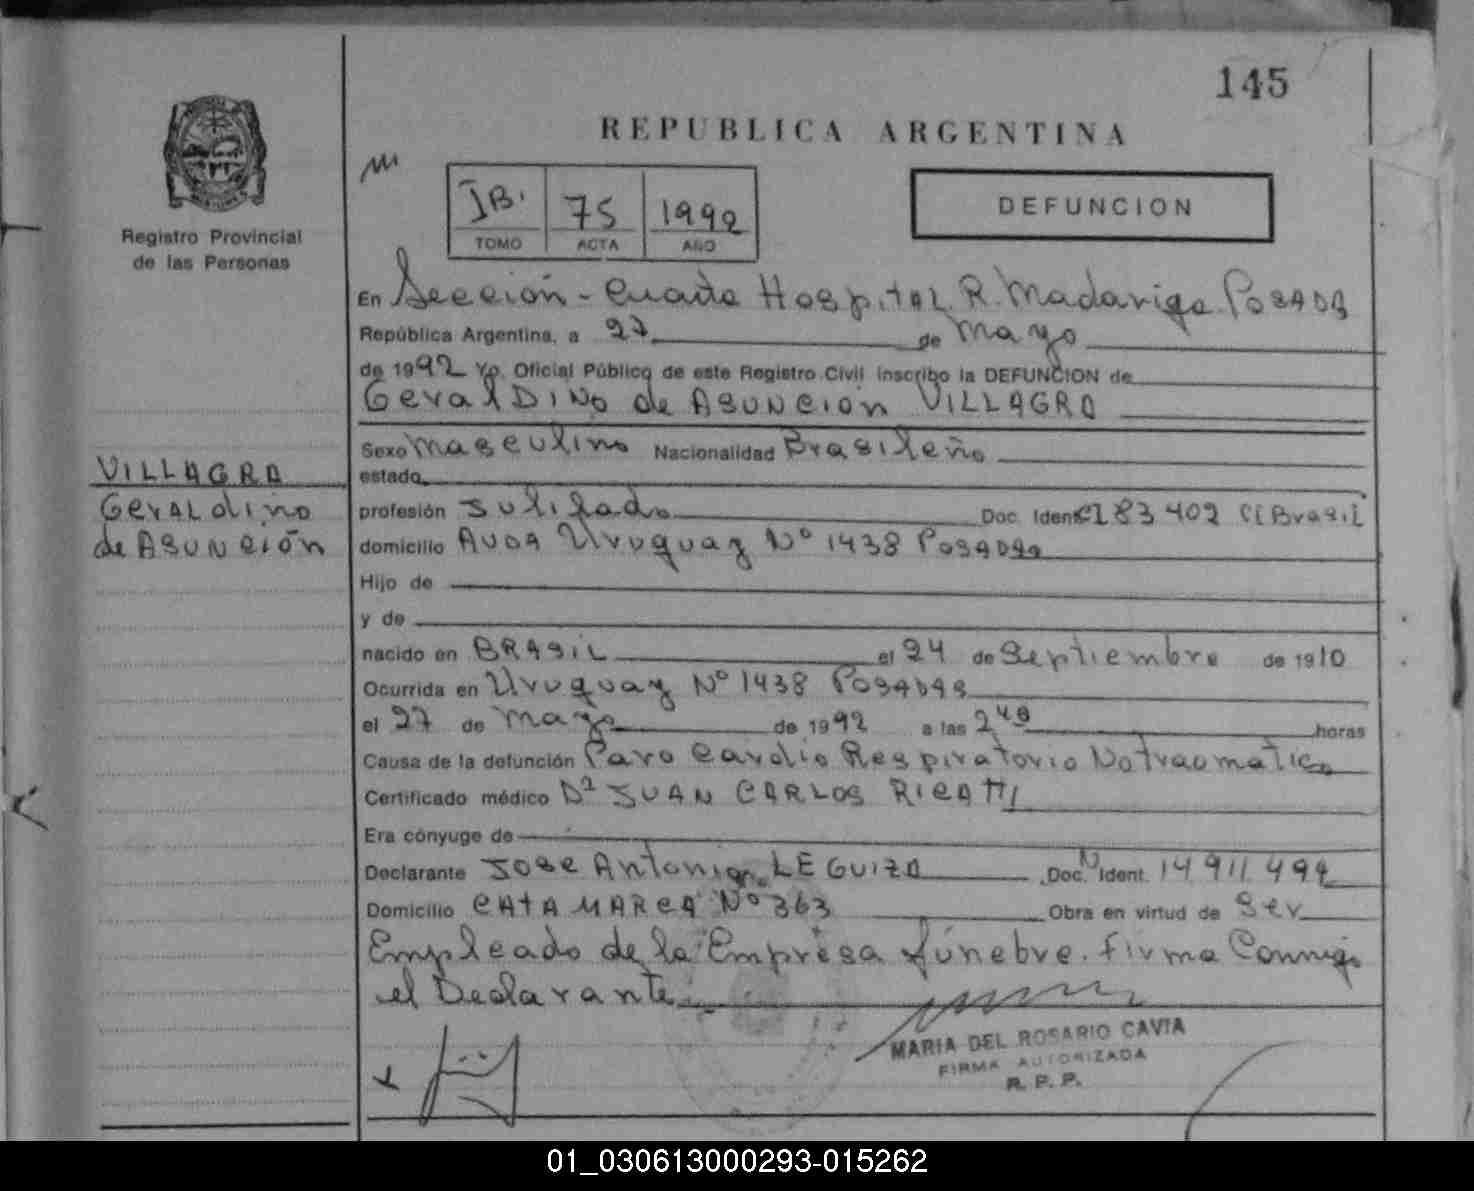 145
REPUBLICA ARGENTINA
Registro Provincial
de las Personas
IB. 75 1992
TOMO ACTA AÑO
DEFUNCION
En Sección - Cuarta Hospital R. Madariaga Posadas
República Argentina, a 27 de Mayo
de 1992 Yo, Oficial Público de este Registro Civil inscribo la DEFUNCION de
Geraldino de Asunción VILLAGRA
VILLAGRA
Geraldino
de Asunción
Sexo Masculino Nacionalidad Brasileño
estado
profesión Julilado Doc. Ident. 183402 CI Brasil
domicilio Avda Uruguay Nº 1438 Posadas
Hijo de
y de
nacido en BRASIL el 24 de Septiembre de 1910
Ocurrida en Uruguay Nº 1438 Posadas
el 27 de Mayo de 1992 a las 2 40 horas
Causa de la defunción Paro Cardio Respiratorio No traumatico
Certificado médico Dr JUAN CARLOS RICATTI
Era cónyuge de
Declarante Jose Antonio LEGUIZA Doc. N Ident. 14.911.494
Domicilio CATAMARCA Nº 363 Obra en virtud de Ser
Empleado de la Empresa fúnebre. Firma Conmigo
el Declarante
MARIA DEL ROSARIO CAVIA
FIRMA AUTORIZADA
R. P. P.
01_030613000293-015262